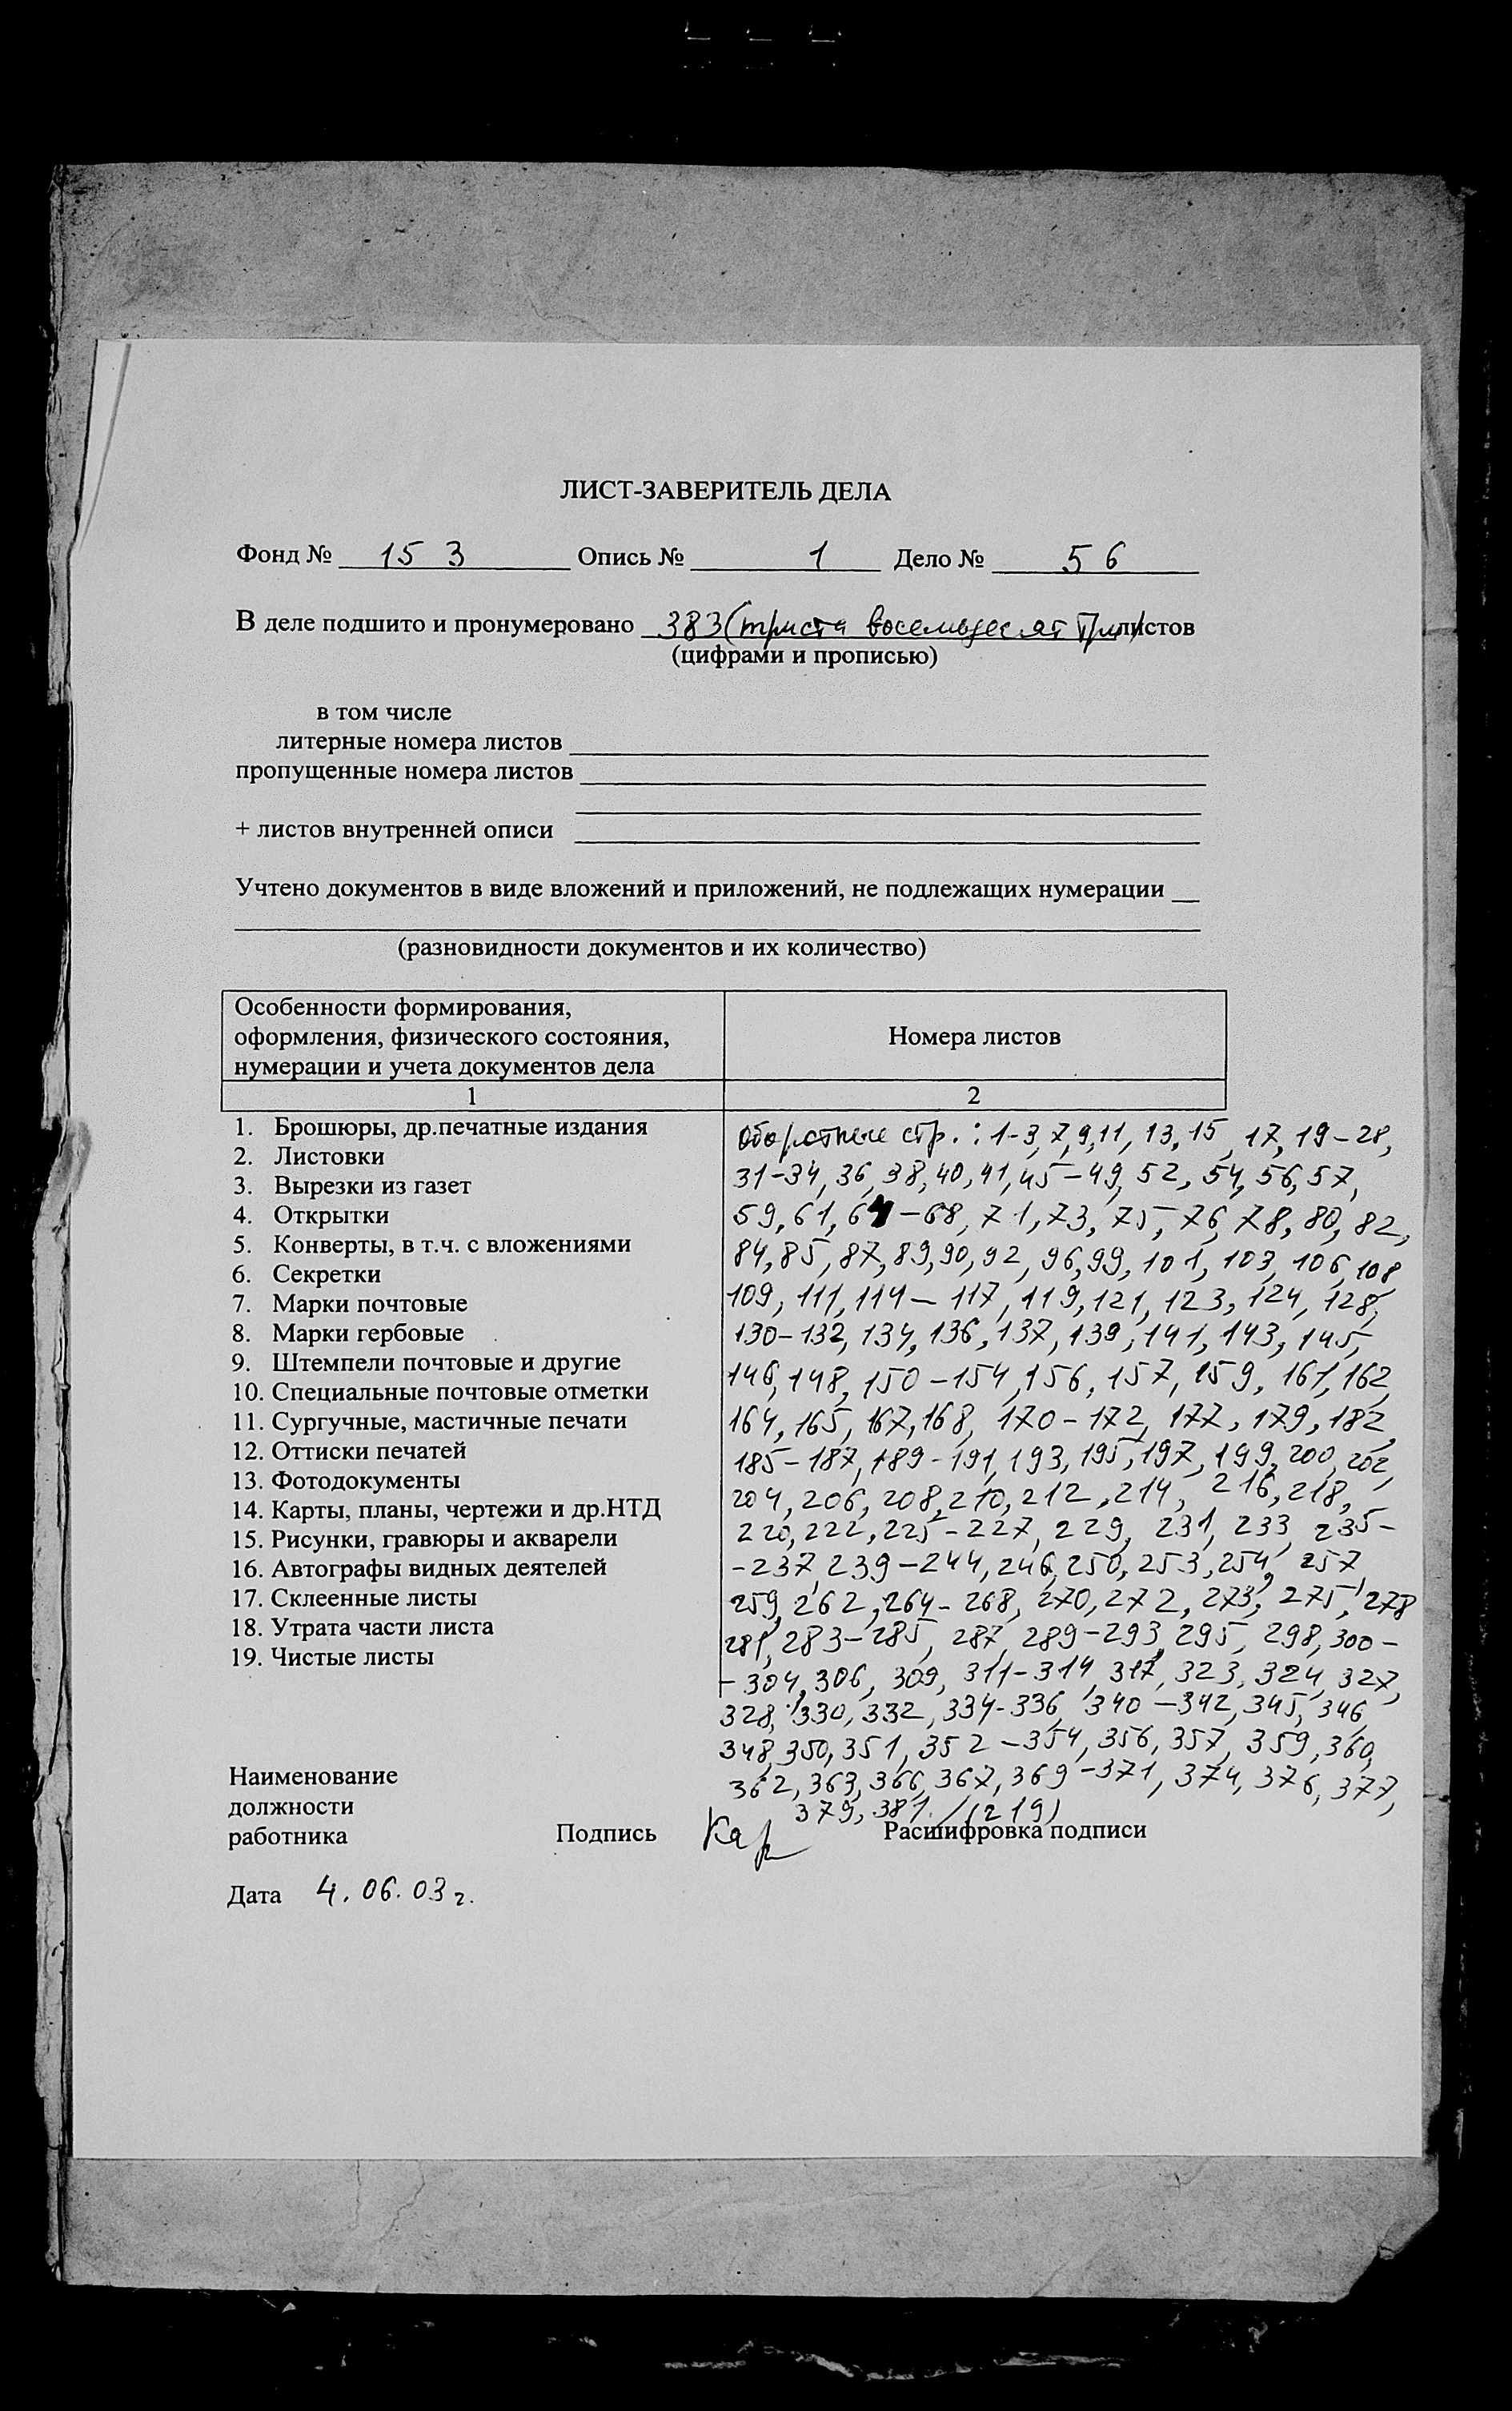 ЛИСТ-ЗАВЕРИТЕЛЬ ДЕЛА
Фонд № 153 Опись № 1 Дело № 56
В деле подшито и пронумеровано 383 (триста восемьдесят три) листов
(цифрами и прописью)
в том числе
литерные номера листов
пропущенные номера листов
+ листов внутренней описи
Учтено документов в виде вложений и приложений, не подлежащих нумерации
(разновидности документов и их количество)
Особенности формирования,
оформления, физического состояния,
нумерации и учета документов дела
Номера листов
1 2
1. Брошюры, др.печатные издания
2. Листовки
3. Вырезки из газет
4. Открытки
5. Конверты, в т.ч. с вложениями
6. Секретки
7. Марки почтовые
8. Марки гербовые
9. Штемпели почтовые и другие
10. Специальные почтовые отметки
11. Сургучные, мастичные печати
12. Оттиски печатей
13. Фотодокументы
14. Карты, планы, чертежи и др.НТД
15. Рисунки, гравюры и акварели
16. Автографы видных деятелей
17. Склеенные листы
18. Утрата части листа
19. Чистые листы
Оборотные стр.: 1-3, 7, 9, 11, 13, 15, 17, 19-28,
31-34, 36, 38, 40, 41, 45-49, 52, 54, 56, 57,
59, 61, 64-68, 71, 73, 75, 76, 78, 80, 82,
84, 85, 87, 89, 90, 92, 96, 99, 101, 103, 106, 108
109, 111, 114-117, 119, 121, 123, 124, 128,
130-132, 134, 136, 137, 139, 141, 143, 145,
146, 148, 150-154, 156, 157, 159, 161, 162,
164, 165, 167, 168, 170-172, 177, 179, 182,
185-187, 189-191, 193, 195, 197, 199, 200, 202,
204, 206, 208, 210, 212, 214, 216, 218,
220, 222, 225-227, 229, 231, 233, 235-
-237, 239-244, 246, 250, 253, 254, 257,
259, 262, 264-268, 270, 272, 273, 275, 278
281, 283-285, 287, 289-293, 295, 298, 300-
-304, 306, 309, 311-314, 317, 323, 324, 327,
328, 330, 332, 334-336, 340-342, 345, 346,
348, 350, 351, 352-354, 356, 357, 359, 360,
362, 363, 366, 367, 369-371, 374, 376, 377,
379, 381. /(219)
Наименование
должности
работника Подпись Кар Расшифровка подписи
Дата 4.06.03 г.